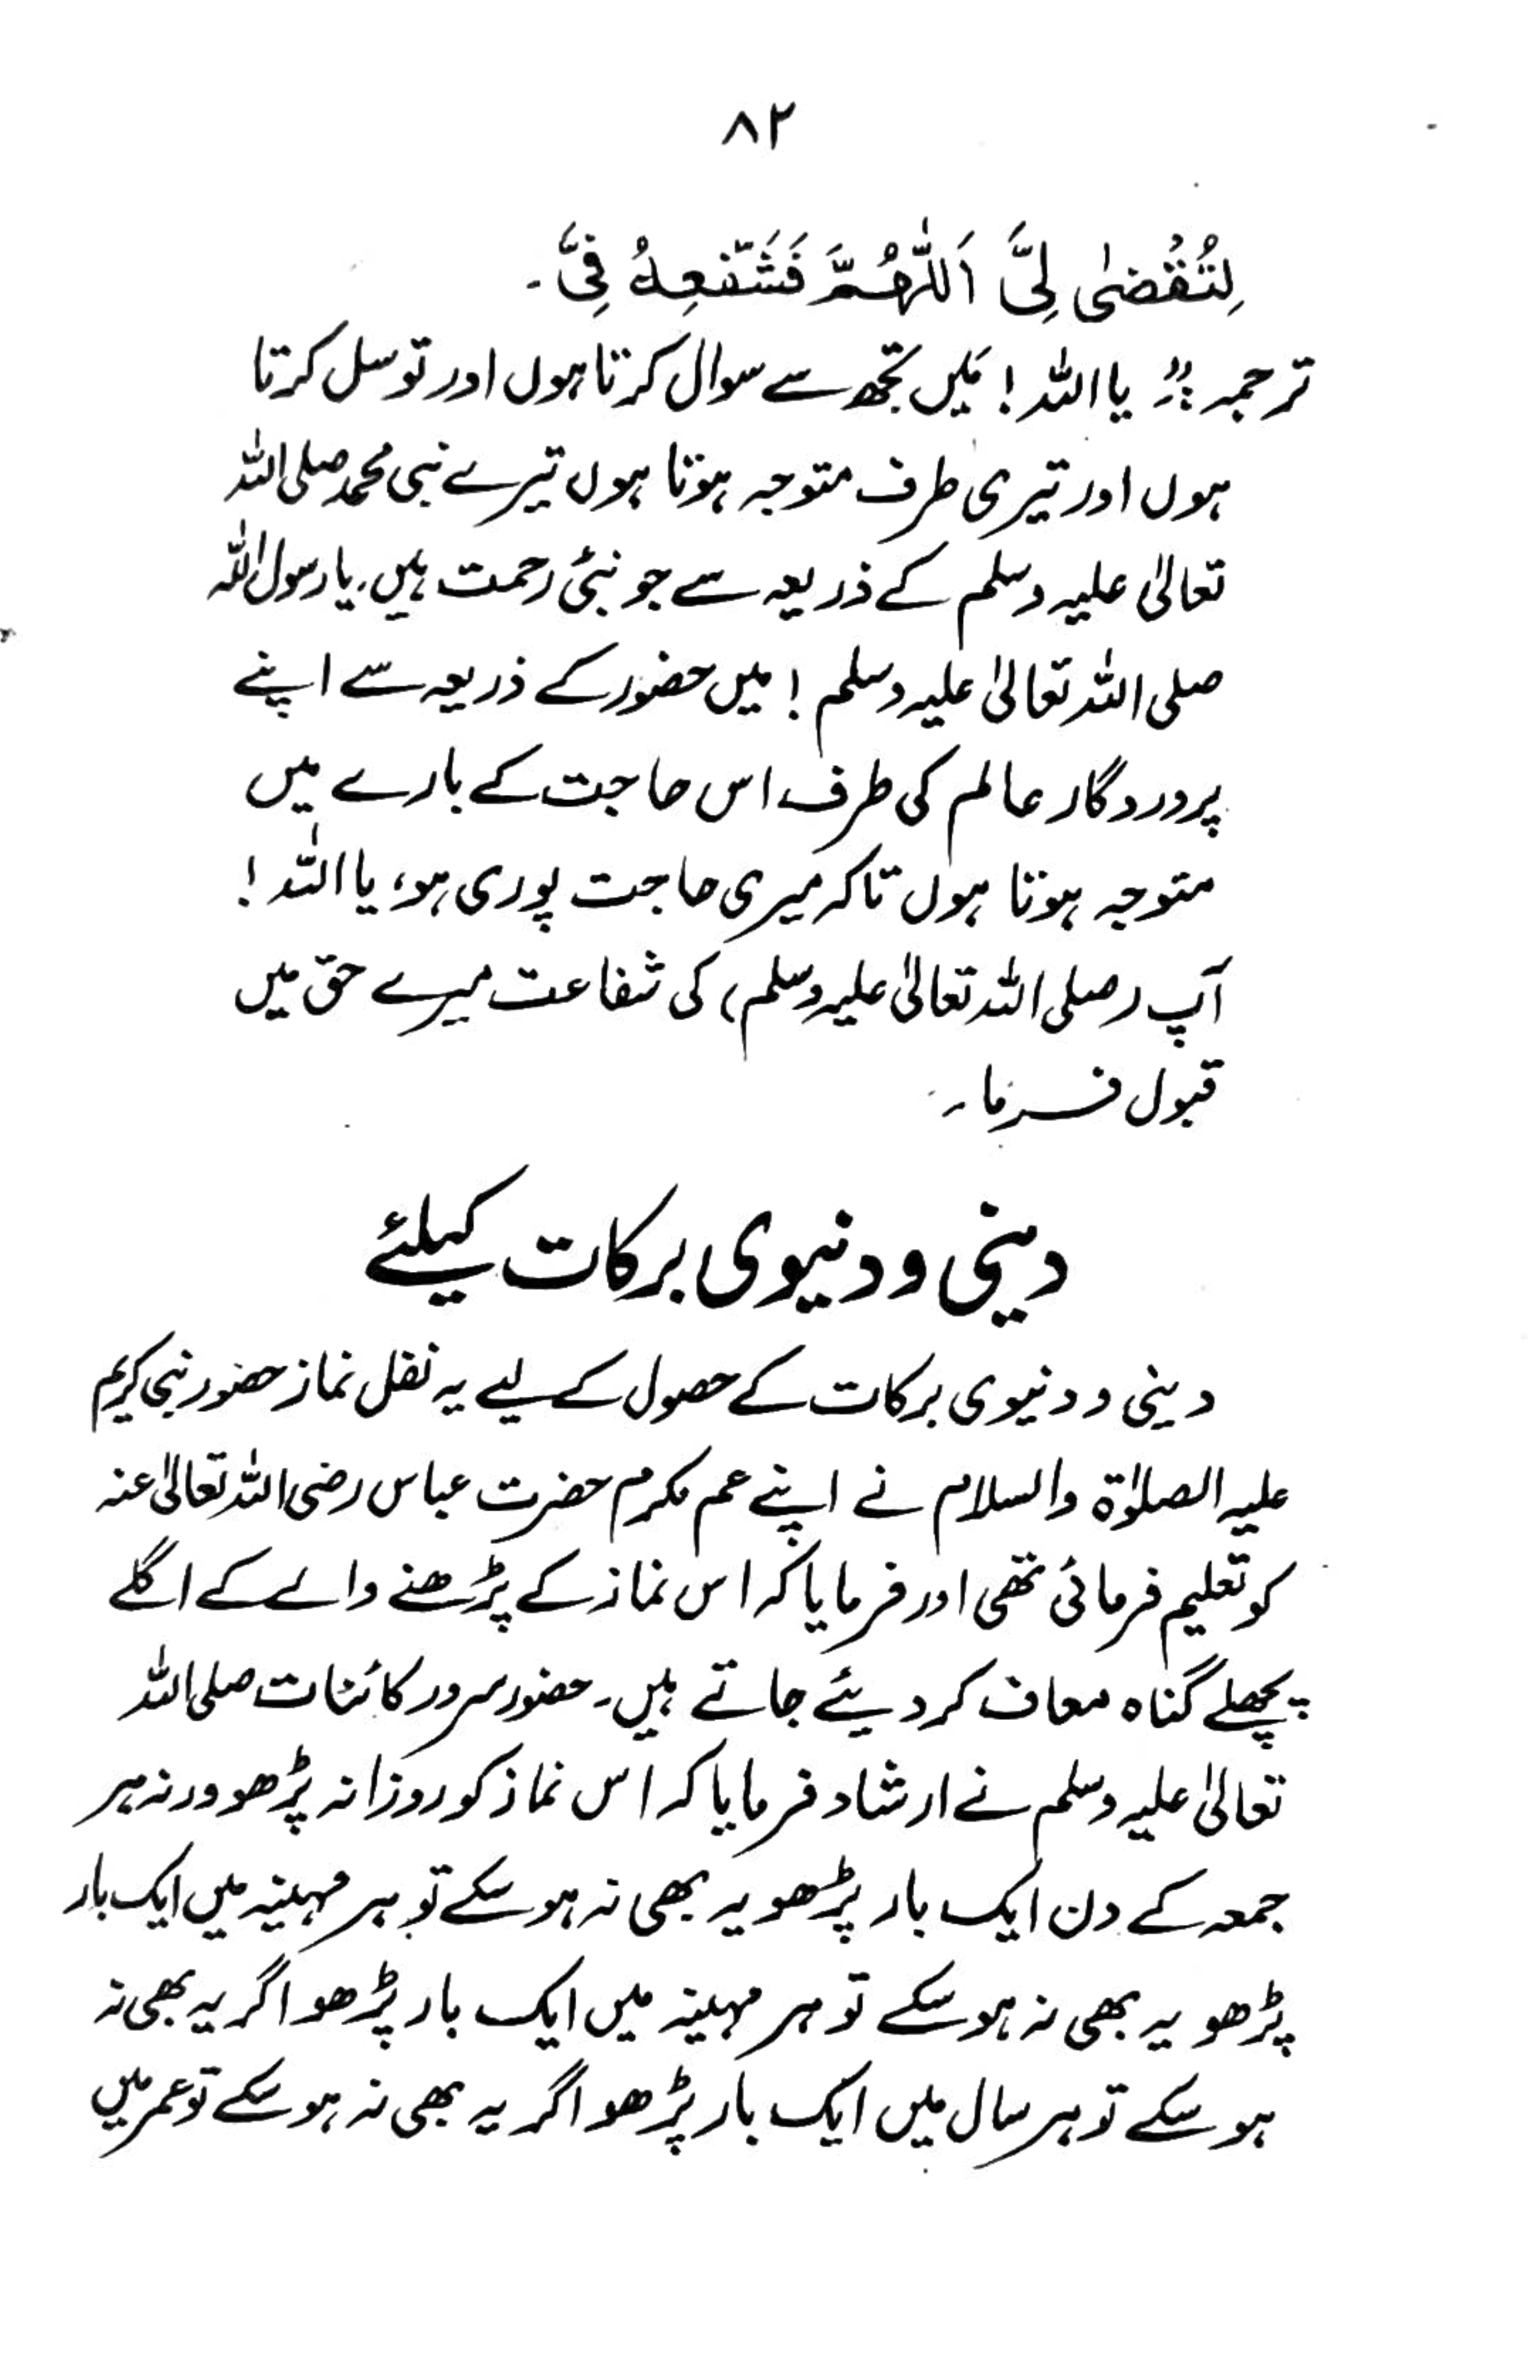 ۸۲
لِتُقْضٰى لِیَّ اَللّٰهُمَّ فَشَفِّعْهُ فِیَّ۔
ترجمہ :۔ "یا اللہ! مَیں تجھ سے سوال کرتا ہوں اور توسل کرتا
ہوں اور تیری طرف متوجہ ہوتا ہوں تیرے نبی محمد صلی اللہ
تعالیٰ علیہ وسلم کے ذریعہ سے جو نبیٔ رحمت ہیں، یا رسول اللہ
صلی اللہ تعالیٰ علیہ وسلم! میں حضور کے ذریعہ سے اپنے
پروردگار عالم کی طرف اس حاجت کے بارے میں
متوجہ ہوتا ہوں تاکہ میری حاجت پوری ہو، یا اللہ!
آپ (صلی اللہ تعالیٰ علیہ وسلم) کی شفاعت میرے حق میں
قبول فرما۔
دینی و دنیوی برکات کیلئے
دینی و دنیوی برکات کے حصول کے لیے یہ نفل نماز حضور نبی کریم
علیہ الصلوٰۃ والسلام نے اپنے عم مکرم حضرت عباس رضی اللہ تعالیٰ عنہ
کو تعلیم فرمائی تھی اور فرمایا کہ اس نماز کے پڑھنے والے کے اگلے
پچھلے گناہ معاف کر دیئے جاتے ہیں۔ حضور سرور کائنات صلی اللہ
تعالیٰ علیہ وسلم نے ارشاد فرمایا کہ اس نماز کو روزانہ پڑھو ورنہ ہر
جمعہ کے دن ایک بار پڑھو یہ بھی نہ ہو سکے تو ہر مہینہ میں ایک بار
پڑھو یہ بھی نہ ہو سکے تو ہر مہینہ میں ایک بار پڑھو اگر یہ بھی نہ
ہو سکے تو ہر سال میں ایک بار پڑھو اگر یہ بھی نہ ہو سکے تو عمر میں